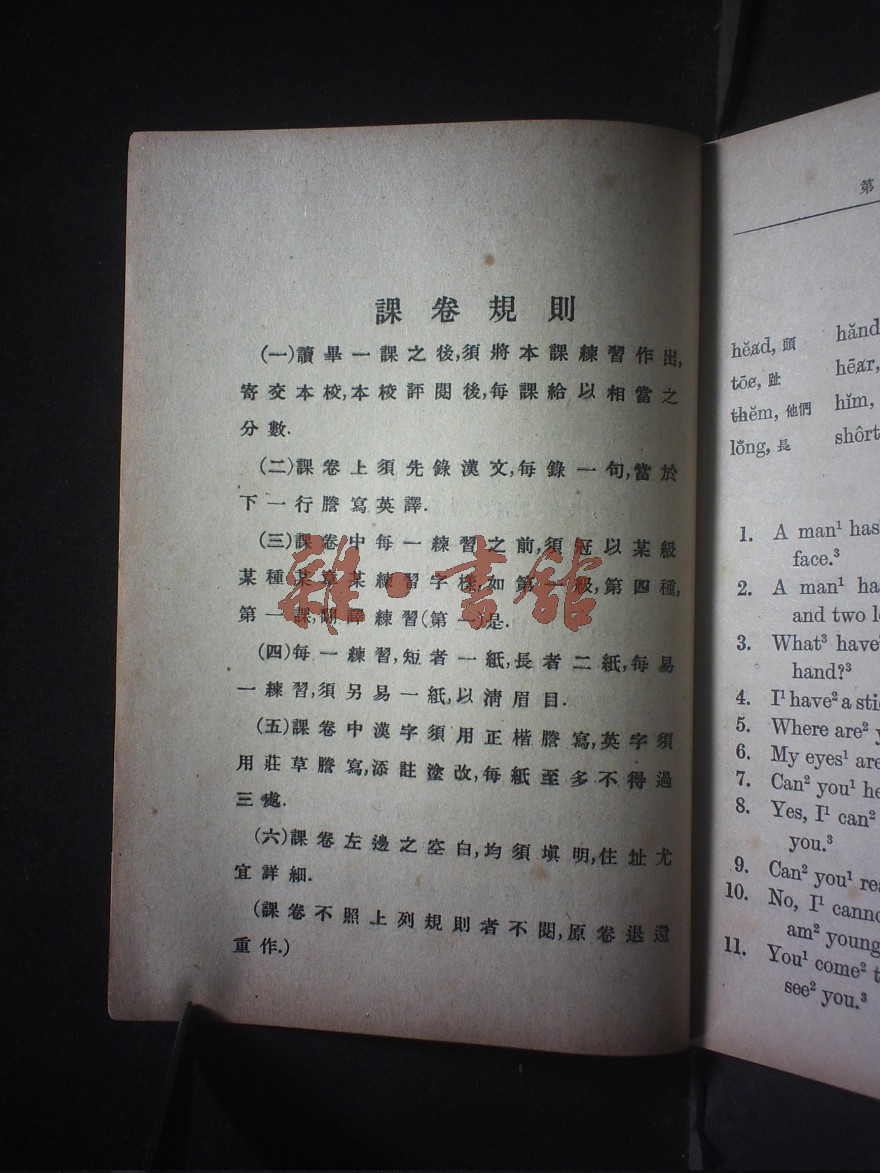 課卷規則
(一)讀畢一課之後,須將本課練習作出,
寄交本校,本校評閱後,每課給以相當之
分數.
(二)課卷上須先錄漢文,每錄一句,當於
下一行謄寫英譯.
(三)課卷中每一練習之前,須冠以某級
某種某章某練習字樣,如第一級,第四種,
第一課,翻譯練習(第一)是.
(四)每一練習,短者一紙,長者二紙,每易
一練習,須另易一紙,以清眉目.
(五)課卷中漢字須用正楷謄寫,英字須
用莊草謄寫,添註塗改,每紙至多不得過
三處.
(六)課卷左邊之空白,均須塡明,住址尤
宜詳細.
(課卷不照上列規則者不閱,原卷退還
重作.)
雜·書館
第
hĕad, 頭 hănd
tōe, 趾 hēar,
thĕm, 他們 hĭm,
lŏng, 長 shôrt
1. A man¹ has
face.³
2. A man¹ ha
and two l
3. What³ have
hand?³
4. I¹ have² a sti
5. Where are² y
6. My eyes¹ are
7. Can² you¹ he
8. Yes, I¹ can²
you.³
9. Can² you¹ rea
10. No, I¹ canno
am² young
11. You¹ come² t
see² you.³